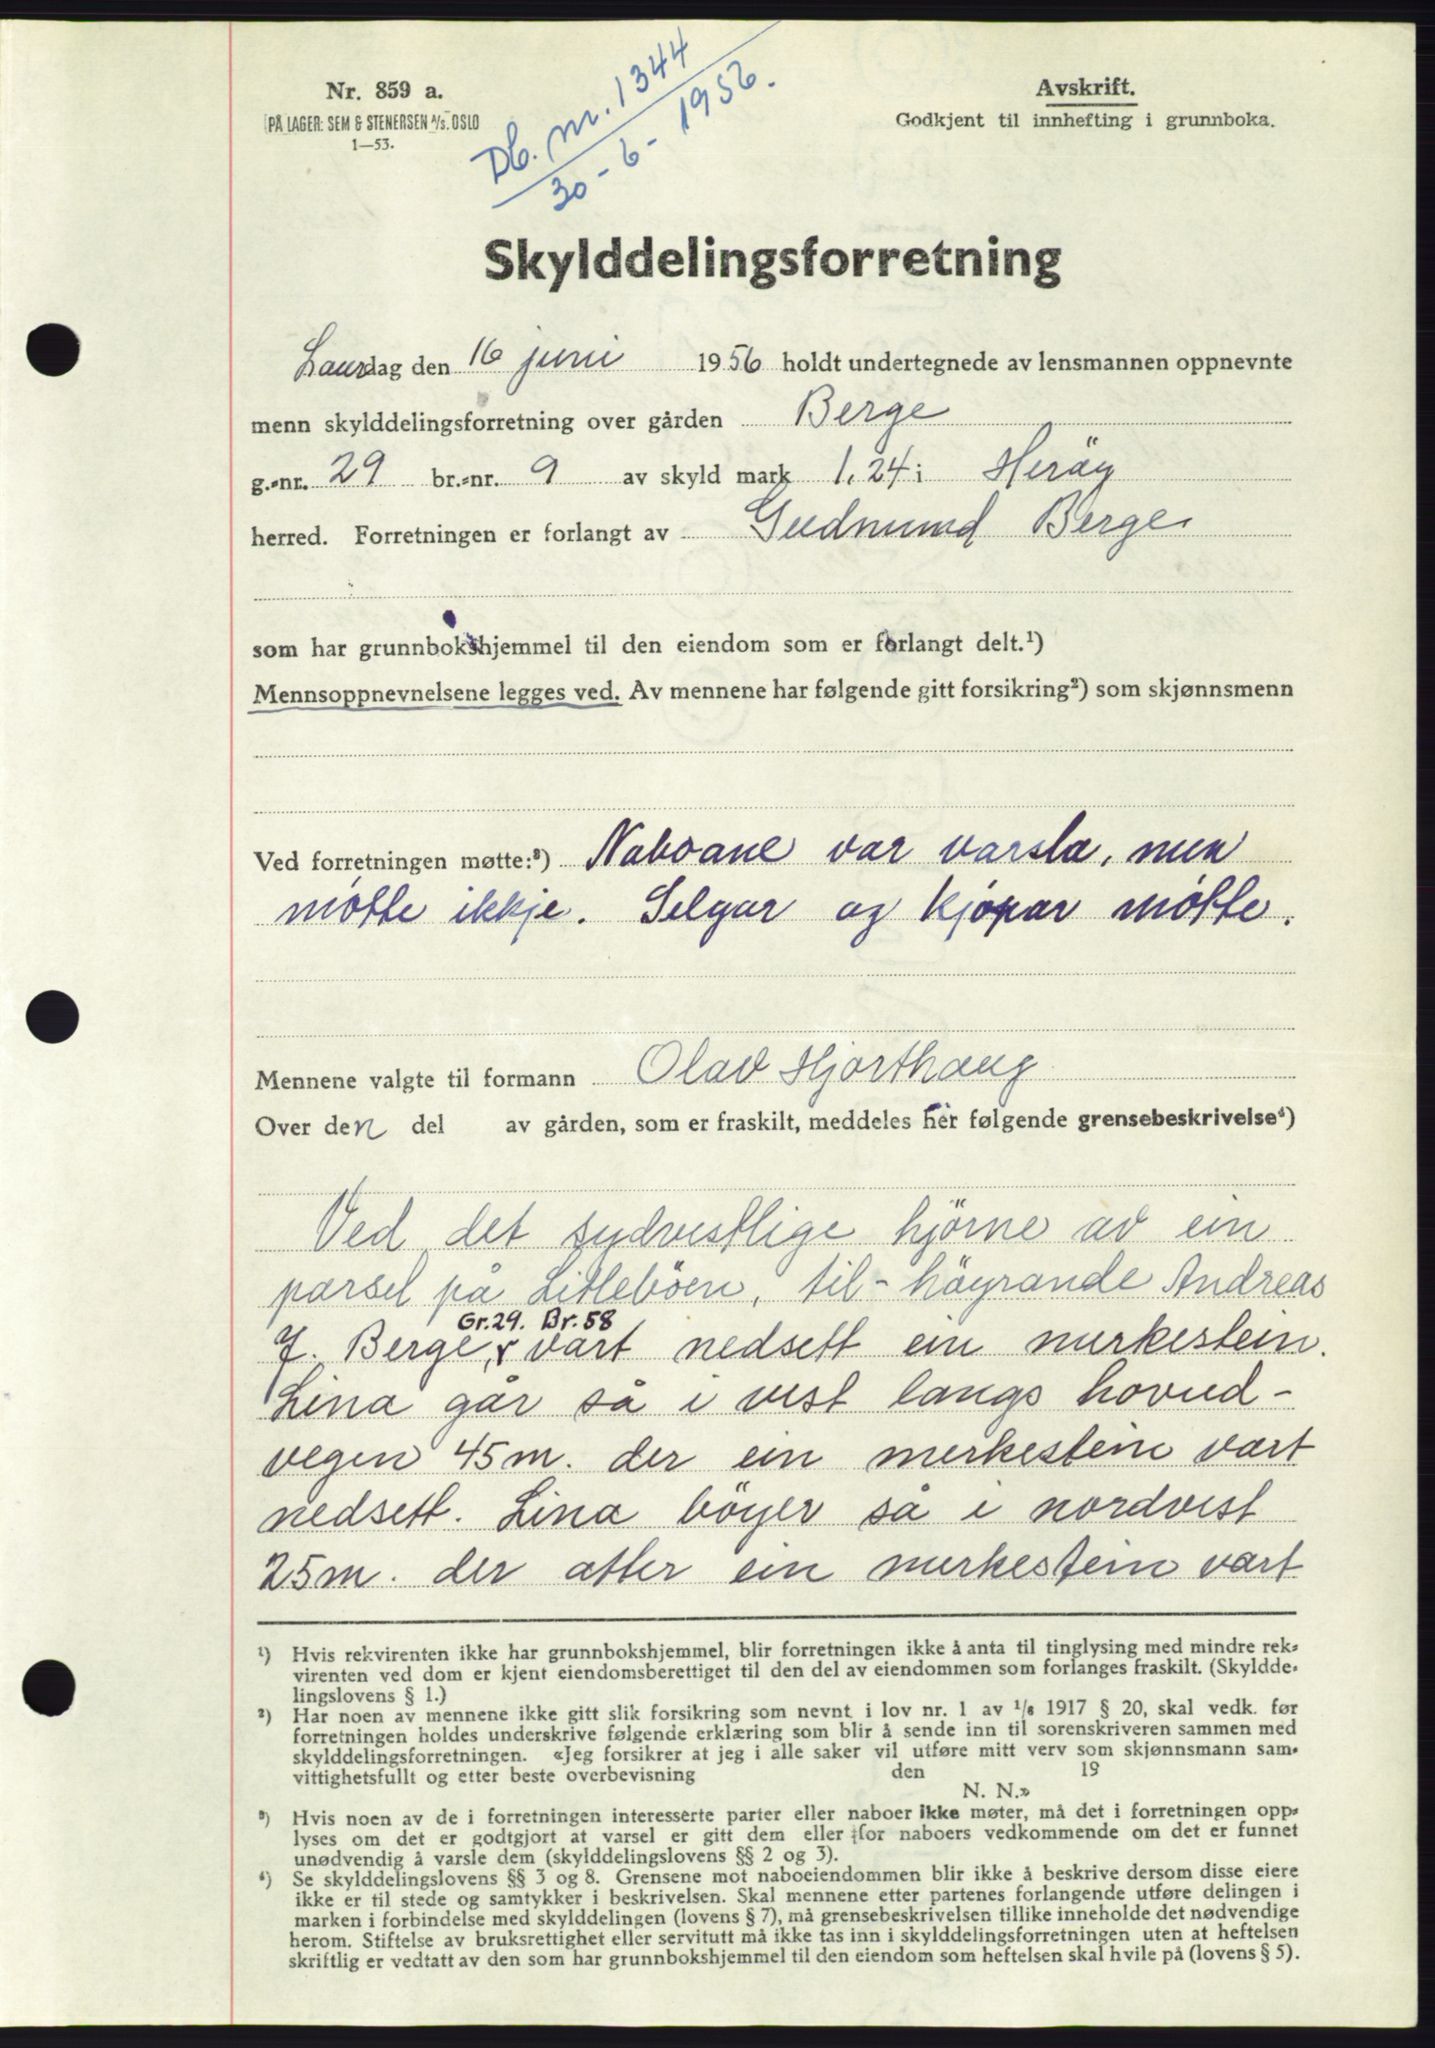 Nr. 859 a.
PÅ LAGER: SEM & STENERSEN A/S. OSLO
1—53.
Db. nr. 1344
30-6-1956.
Avskrift.
Godkjent til innhefting i grunnboka.
Skylddelingsforretning
Laurdag den 16 juni 1956 holdt undertegnede av lensmannen oppnevnte
menn skylddelingsforretning over gården Berge
g.-nr. 29 br.-nr. 9 av skyld mark 1,24 i Heröy
herred. Forretningen er forlangt av Gudmund Berge
som har grunnbokshjemmel til den eiendom som er forlangt delt.¹)
Mennsoppnevnelsene legges ved. Av mennene har følgende gitt forsikring²) som skjønnsmenn
Ved forretningen møtte:³) Naboane var varsla, men
møtte ikkje. Selgar og kjøpar møtte.
Mennene valgte til formann Olav Hjorthaug
Over den del av gården, som er fraskilt, meddeles her følgende grensebeskrivelse⁴)
Ved det sydvestlige hjörne av ein
parsel på Litleböen, til-höyrande Andreas
Gr.29. Br.58
J. Berge, vart nedsett ein merkestein.
Lina går så i vest langs hovud-
vegen 45m. der ein merkestein vart
nedsett. Lina böyer så i nordvest
25m. der atter ein merkestein vart
¹) Hvis rekvirenten ikke har grunnbokshjemmel, blir forretningen ikke å anta til tinglysing med mindre rek-
virenten ved dom er kjent eiendomsberettiget til den del av eiendommen som forlanges fraskilt. (Skyldde-
lingslovens § 1.)
²) Har noen av mennene ikke gitt slik forsikring som nevnt i lov nr. 1 av ¹/₈ 1917 § 20, skal vedk. før
forretningen holdes underskrive følgende erklæring som blir å sende inn til sorenskriveren sammen med
skylddelingsforretningen. «Jeg forsikrer at jeg i alle saker vil utføre mitt verv som skjønnsmann sam-
vittighetsfullt og etter beste overbevisning den 19
N. N.»
³) Hvis noen av de i forretningen interesserte parter eller naboer ikke møter, må det i forretningen opp-
lyses om det er godtgjort at varsel er gitt dem eller for naboers vedkommende om det er funnet
unødvendig å varsle dem (skylddelingslovens §§ 2 og 3).
⁴) Se skylddelingslovens §§ 3 og 8. Grensene mot naboeiendommen blir ikke å beskrive dersom disse eiere
ikke er til stede og samtykker i beskrivelsen. Skal mennene etter partenes forlangende utføre delingen i
marken i forbindelse med skylddelingen (lovens § 7), må grensebeskrivelsen tillike inneholde det nødvendige
herom. Stiftelse av bruksrettighet eller servitutt må ikke tas inn i skylddelingsforretningen uten at heftelsen
skriftlig er vedtatt av den som har grunnbokshjemmel til den eiendom som heftelsen skal hvile på (lovens § 5).